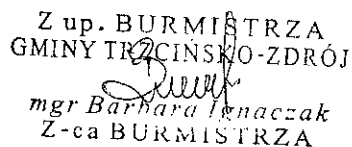 Z up. BURMISTRZA
GMINY TRZCIŃSKO-ZDRÓJ
mgr Barbara Ignaczak
Z-ca BURMISTRZA